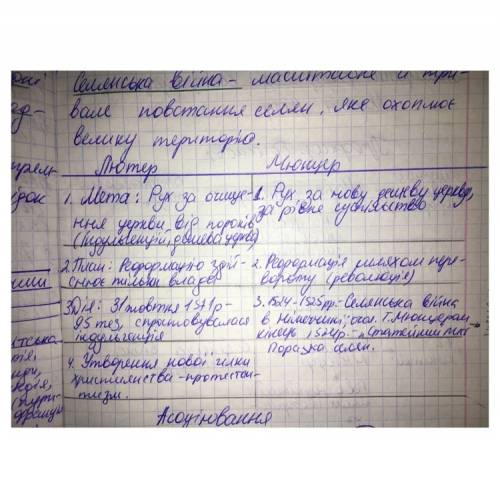 Селянська війна - масштабне й три-
вале повстання селян, яке охоплює
велику територію.
Лютер
Мюнцер
1. Мета: Рух за очище-
ння церкви, від пороків
(індульгенцій, дешева церква)
1. Рух за нову дешеву церкву,
за рівне суспільство
2. План: Реформацію здій-
снює тільки влада
2. Реформація шляхом пере-
вороту (революція)
3. Дії: 31 жовтня 1517р-
95 тез, спростовувалася
індульгенція
3. 1524-1525рр.-Селянська війна
в Німеччині, чол. Т. Мюнцером
кінець 1524р-
Поразка селян.
4. Утворення нової гілки
християнства-протестан-
тизм.
Асоціювання